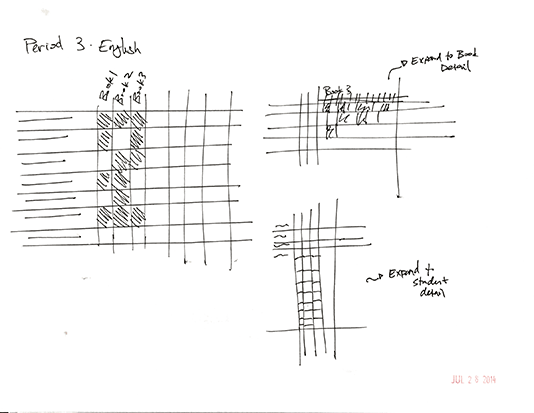 Period 3 · English
Book 1
Book 2
Book 3
Book 3
Expand to Book
Detail
Expand to
student
detail
JUL 28 2014